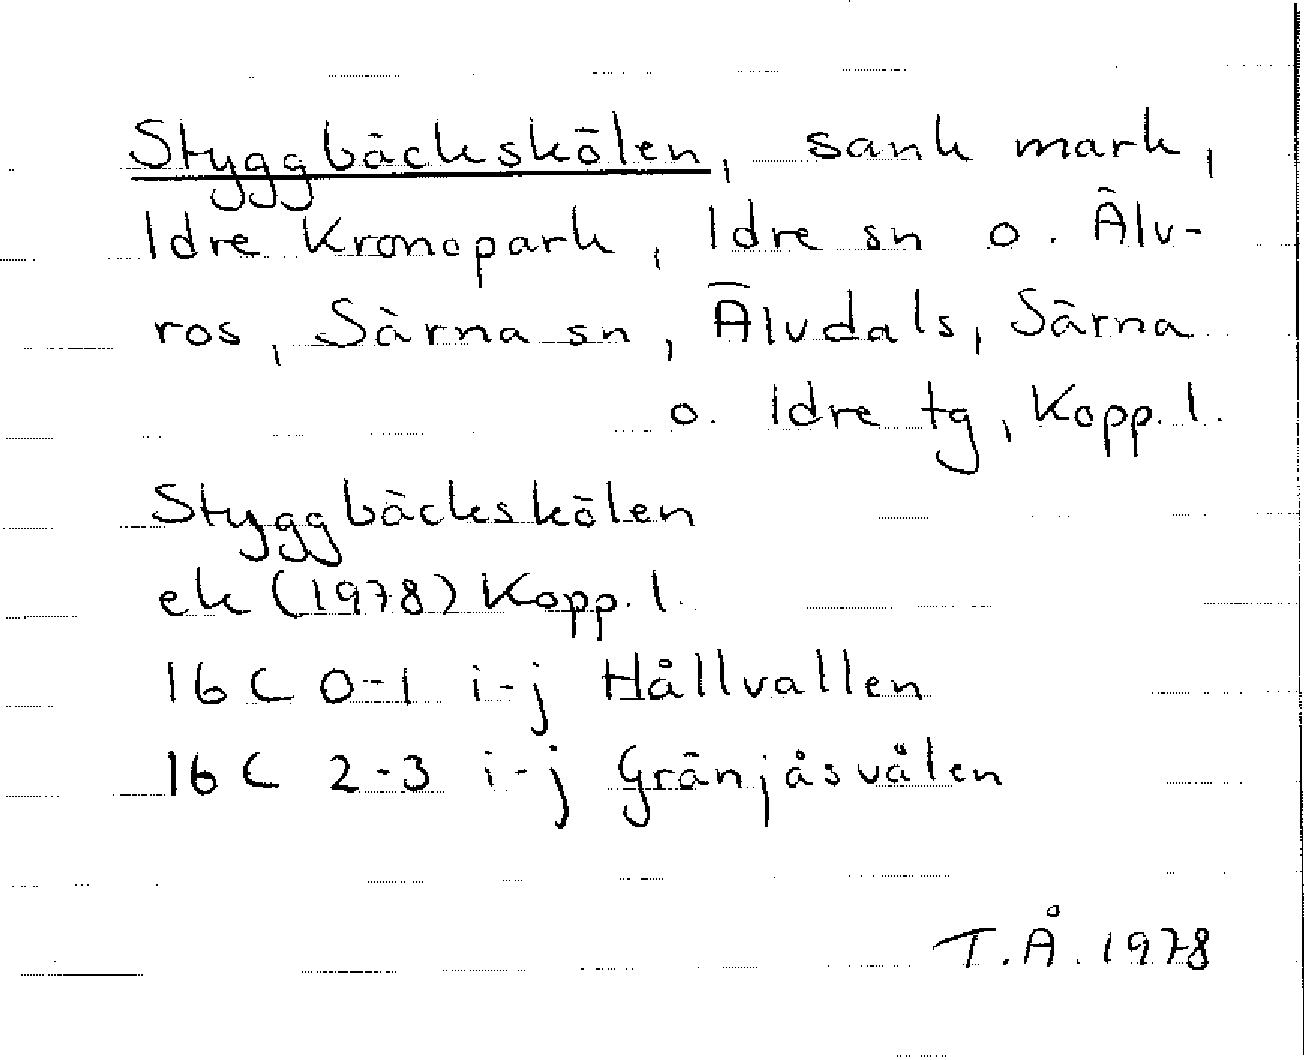 Styggbäckskölen, sank mark,
Idre Kronopark, Idre sn o. Älv-
ros, Särna sn, Älvdals, Särna
o. Idre tg, Kopp. l.
Styggbäckskölen
ek (1978) Kopp. l.
16 C 0-1 i-j Hållvallen
16 C 2-3 i-j Gränjåsvålen
T.Å. 1978